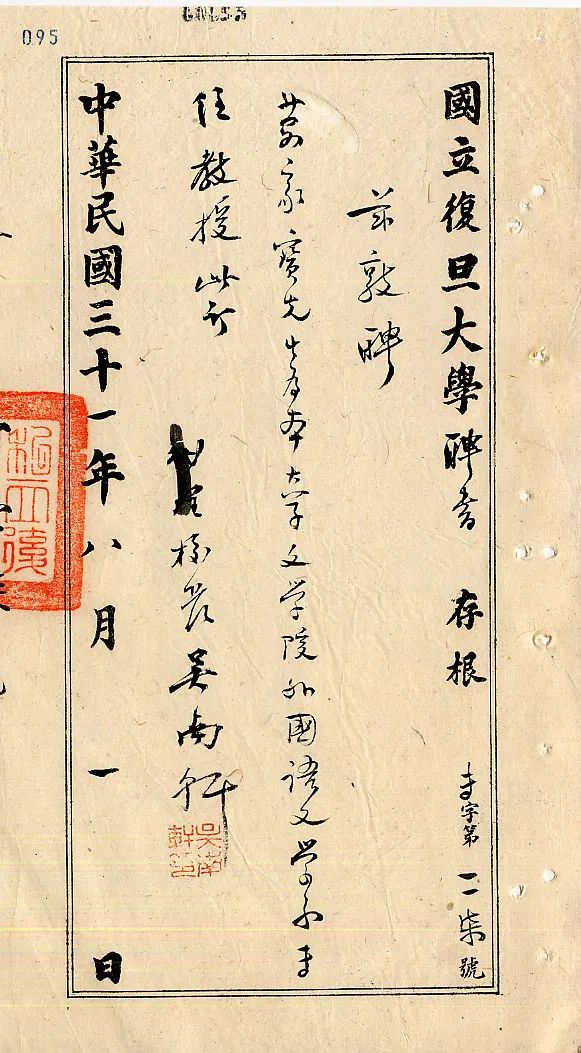 095
國立復旦大學聘書 存根 字第二柒號
茲敦聘
萬家寶先生為本大学文学院外國語文學系專
任教授此訂
校長吳南軒
吳南軒印
中華民國三十一年八月一日